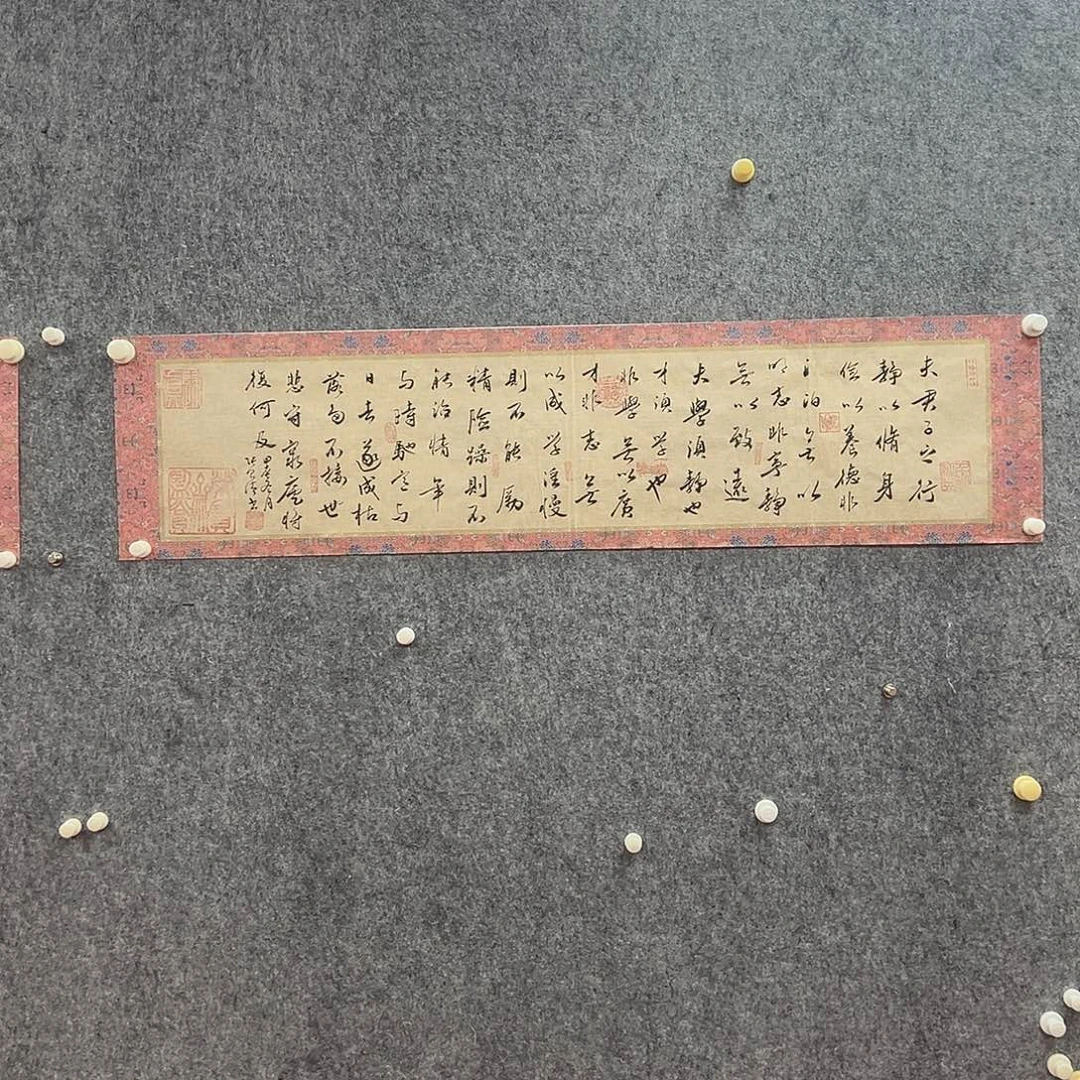 夫君子之行
静以脩身
俭以養德非
泊無以
明志非寧静
無以致遠
夫學須静也
才須学也
非學無以廣
才非志無
以成学淫慢
則不能勵
精险躁則不
能治情年
与時馳意与
日去遂成枯
落不接世
悲守窮廬将
復何及